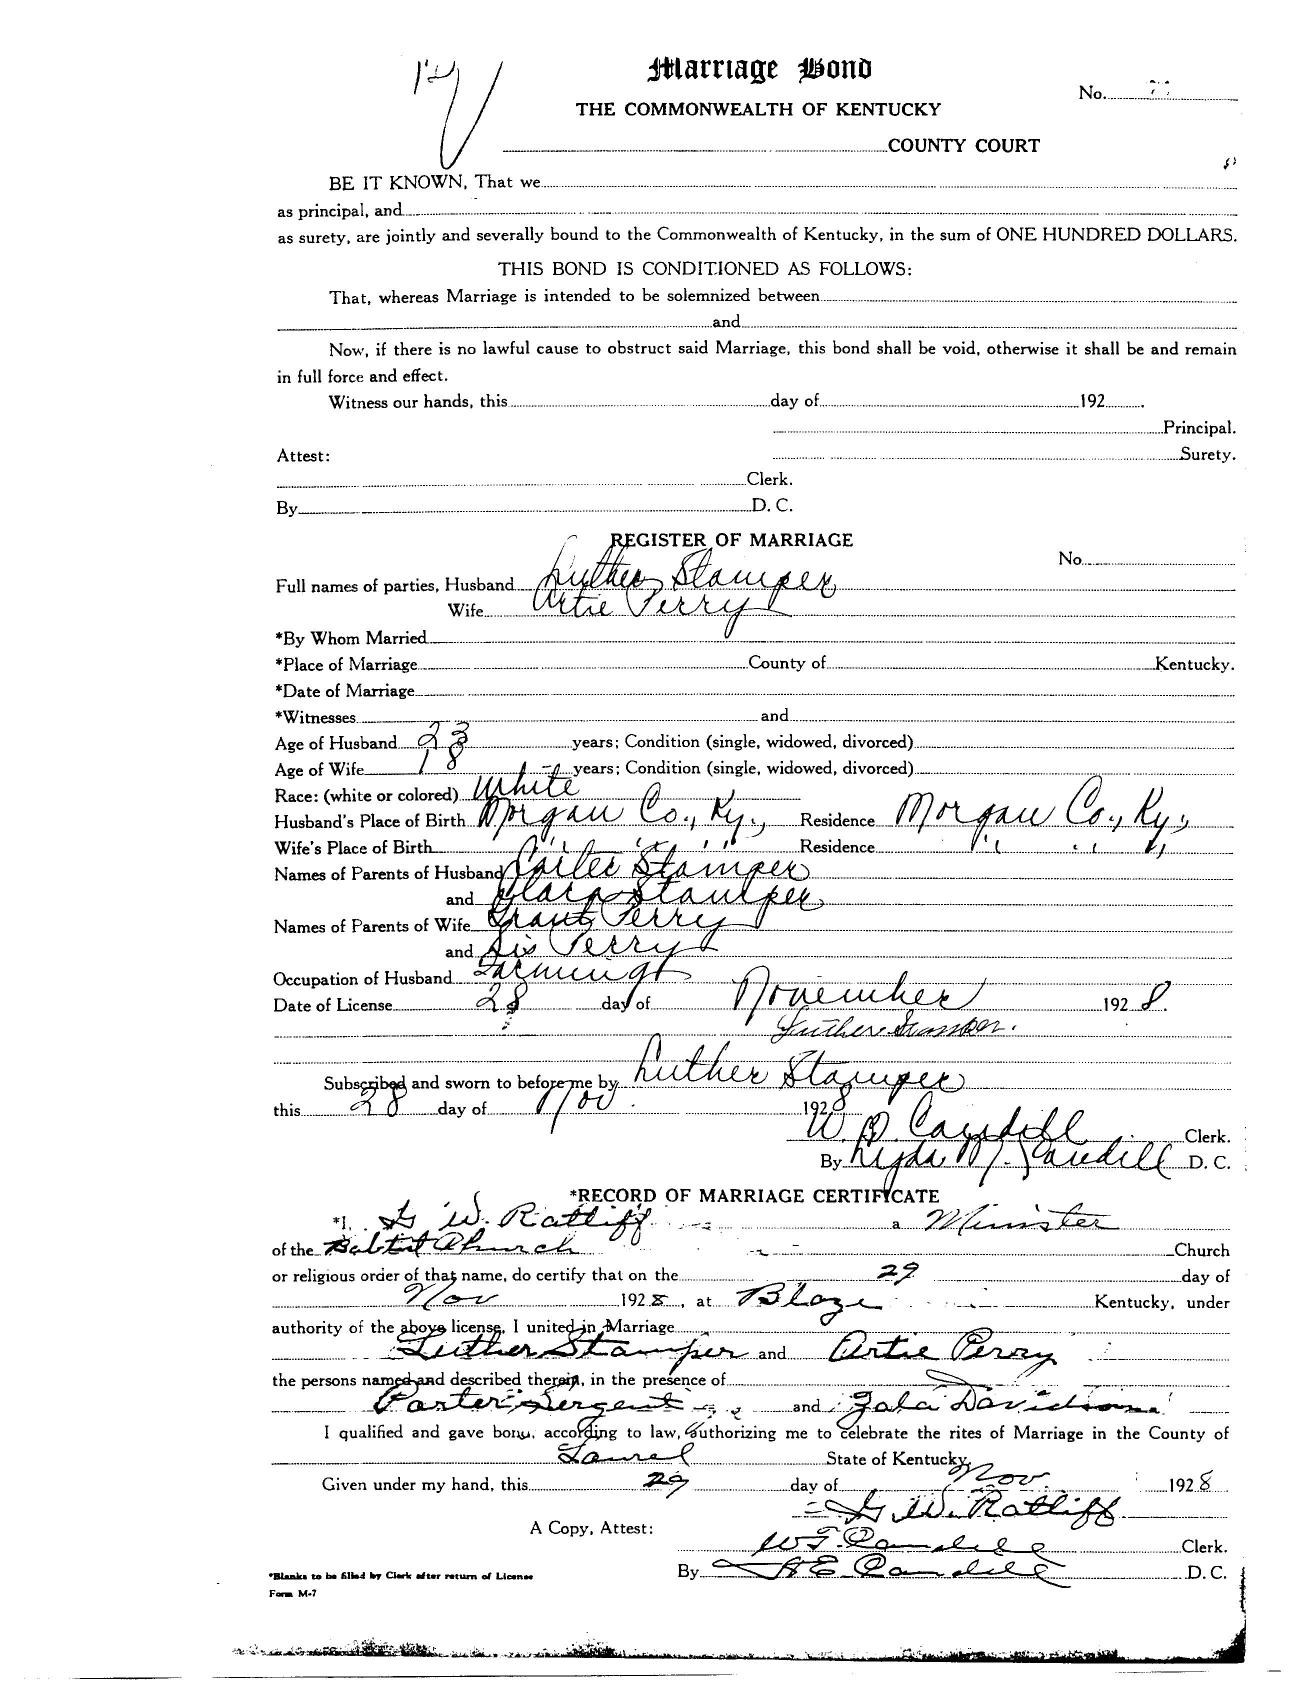 Marriage Bond
No.
THE COMMONWEALTH OF KENTUCKY
COUNTY COURT
BE IT KNOWN, That we
as principal, and
as surety, are jointly and severally bound to the Commonwealth of Kentucky, in the sum of ONE HUNDRED DOLLARS.
THIS BOND IS CONDITIONED AS FOLLOWS:
That, whereas Marriage is intended to be solemnized between
and
Now, if there is no lawful cause to obstruct said Marriage, this bond shall be void, otherwise it shall be and remain
in full force and effect.
Witness our hands, this day of 192 .
Principal.
Attest: Surety.
Clerk.
By D. C.
REGISTER OF MARRIAGE
No.
Full names of parties, Husband Luther Stamper
Wife Artie Perry
*By Whom Married
*Place of Marriage County of Kentucky.
*Date of Marriage
*Witnesses and
Age of Husband 23 years; Condition (single, widowed, divorced)
Age of Wife 18 years; Condition (single, widowed, divorced)
Race: (white or colored) White
Husband's Place of Birth Morgan Co., Ky., Residence Morgan Co., Ky.,
Wife's Place of Birth " " " Residence " " "
Names of Parents of Husband Carter Stamper
and Clara Stamper
Names of Parents of Wife Grant Perry
and Sis Perry
Occupation of Husband Farming
Date of License 28 day of November 1928.
Luther Stamper.
Subscribed and sworn to before me by Luther Stamper
this 28 day of Nov. 1928
W. Caudill Clerk.
By Lyda M. Caudill D. C.
*RECORD OF MARRIAGE CERTIFICATE
*I, W. Ratliff a Minister
of the Babtist Church Church
or religious order of that name, do certify that on the 29 day of
Nov 1928, at Blaze Kentucky, under
authority of the above license, I united in Marriage
Luther Stamper and Artie Perry
the persons named and described therein, in the presence of
Porter Sergent and Zola Davidson
I qualified and gave bond, according to law, authorizing me to celebrate the rites of Marriage in the County of
Laurel State of Kentucky.
Given under my hand, this 29 day of Nov 1928
W. Ratliff
A Copy, Attest:
Caudill Clerk.
By Caudill D. C.
*Blanks to be filled by Clerk after return of License
Form M-7